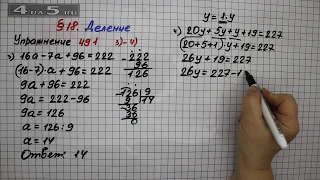 4NA5.RU
§18. Деление
Упражнение 491 3)-4)
3) 16a-7a+96=222
(16-7)·a+96=222
9a+96=222
9a=222-96
9a=126
a=126:9
a=14
Ответ: 14
222
96
126
126 9
9 14
36
36
0
y=1·y
4) 20y+5y+y+19=227
(20+5+1)·y+19=227
26y+19=227
26y=227-1